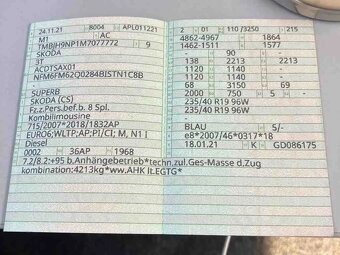 24.11.21 8004 APL011221
M1 AC
TMBJH9NP1M7077772 9
SKODA
3T
ACDTSAX01
NFM6FM62Q0284BISTN1C8B
-
SUPERB
SKODA (CS)
Fz.z.Pers.bef.b. 8 Spl.
Kombilimousine
715/2007*2018/1832AP
EURO6;WLTP;AP;PI/CI; M, N1 I
Diesel
0002 36AP 1968
7.2/8.2:+95 b.Anhängebetrieb*techn.zul.Ges-Masse d.Zug
kombination:4213kg*ww.AHK lt.EGTG*
2 01 110 /3250 215
4862-4967 1864
1462-1511 1577
- 90 -
138 2213 2213
1120 1140 -
1120 1140 -
68 3150 69
2000 750 5 -
235/40 R19 96W
235/40 R19 96W
-
BLAU 5/-
e8*2007/46*0317*18
18.01.21 K GD086175